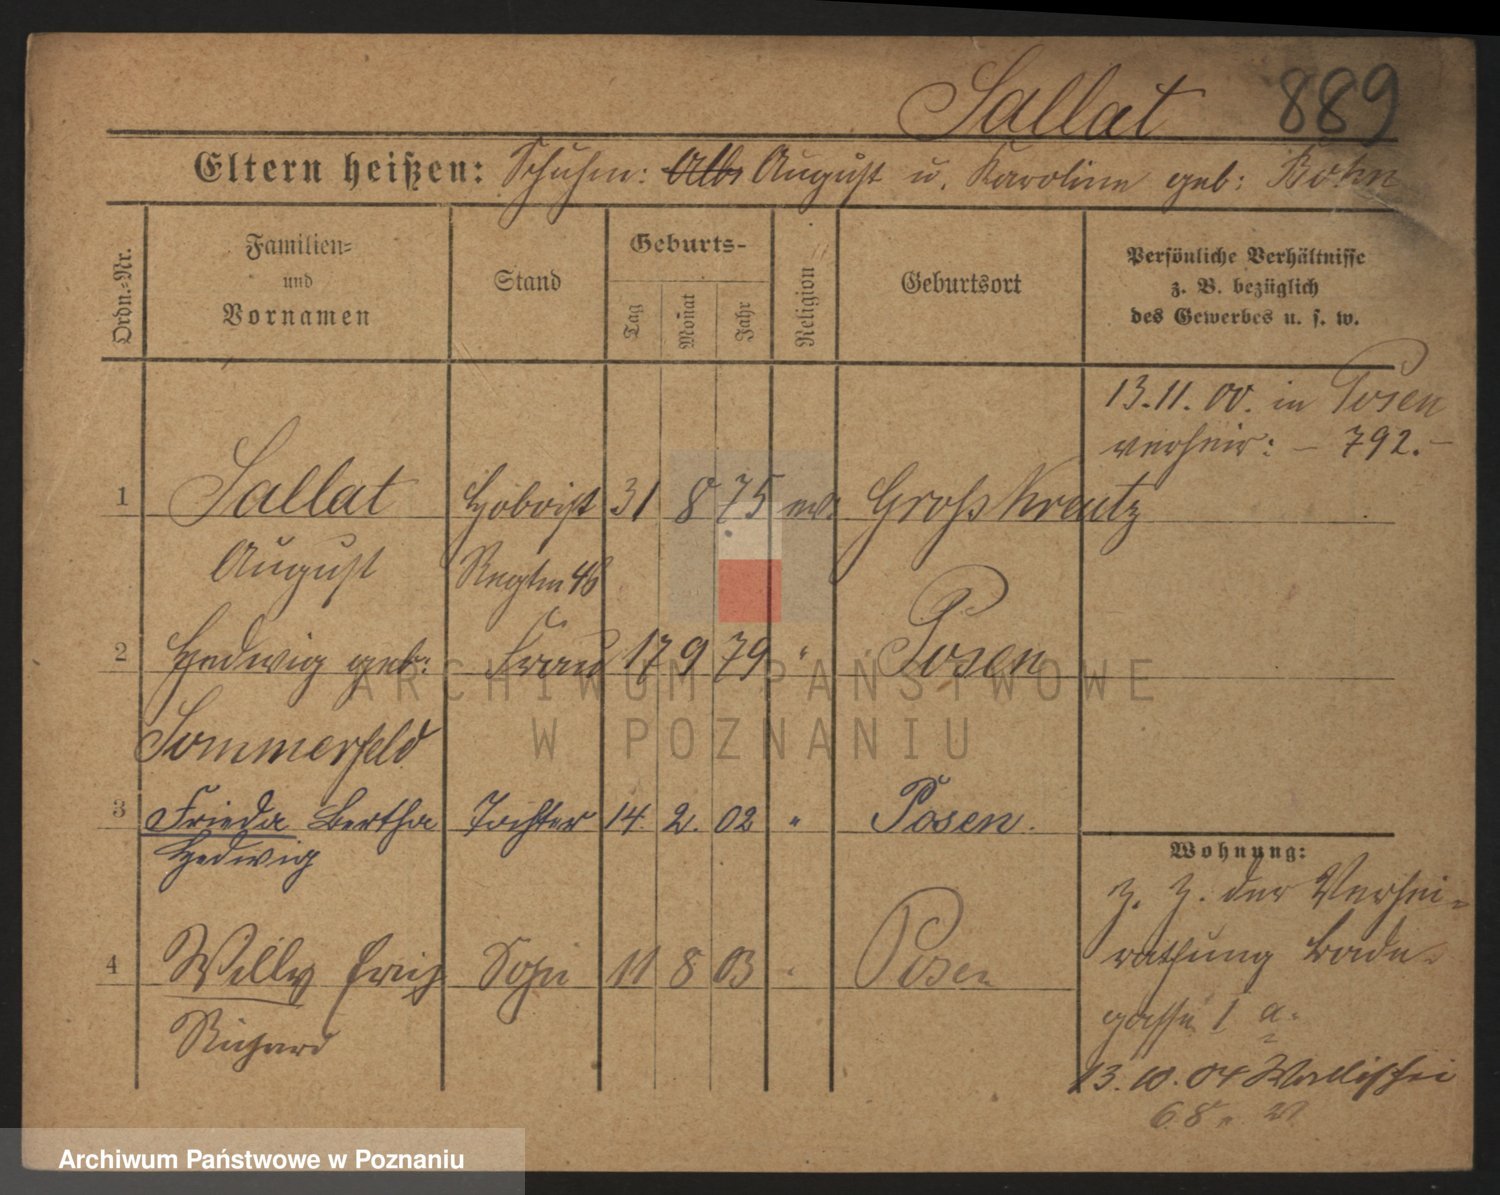 Sallat 889
Eltern heißen: Schuhm: Alb August u. Karoline geb: Böhn
Ordn.-Nr.
Familien-
und
Vornamen
Stand
Geburts-
Tag
Monat
Jahr
Religion
Geburtsort
Persönliche Verhältnisse
z. B. bezüglich
des Gewerbes u. s. w.
13.11.00. in Posen
verheir: – 792.–
1 Sallat Hoboist 31 8 75 ev. Groß Kreutz
August Regtm 46
2 Hedwig geb: Frau 17 9 79 " Posen
Sommerfeld
3 Frieda Bertha Tochter 14. 2. 02 " Posen.
Hedwig
Wohnung:
z. Z. der Verhei-
4 Willy Erich Sohn 11 8 03 " Posen
rathung Bade-
Richard
gasse 1 a.
13.10.04 Wallischei
68
ARCHIWUM PAŃSTWOWE
W POZNANIU
Archiwum Państwowe w Poznaniu